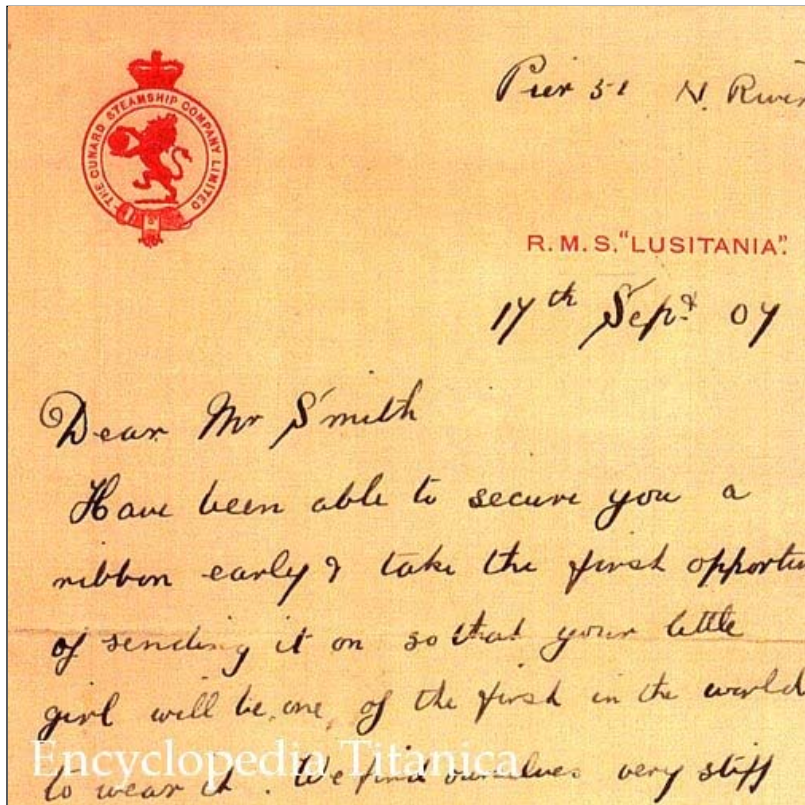 THE CUNARD STEAMSHIP COMPANY LIMITED
Pier 51 N. River
R.M.S. "LUSITANIA".
17th Sept 07
Dear Mr Smith
Have been able to secure you a
ribbon early & take the first opportun
of sending it on so that your little
girl will be one of the first in the world
to wear it. We find ourselves very stiff
Encyclopedia Titanica